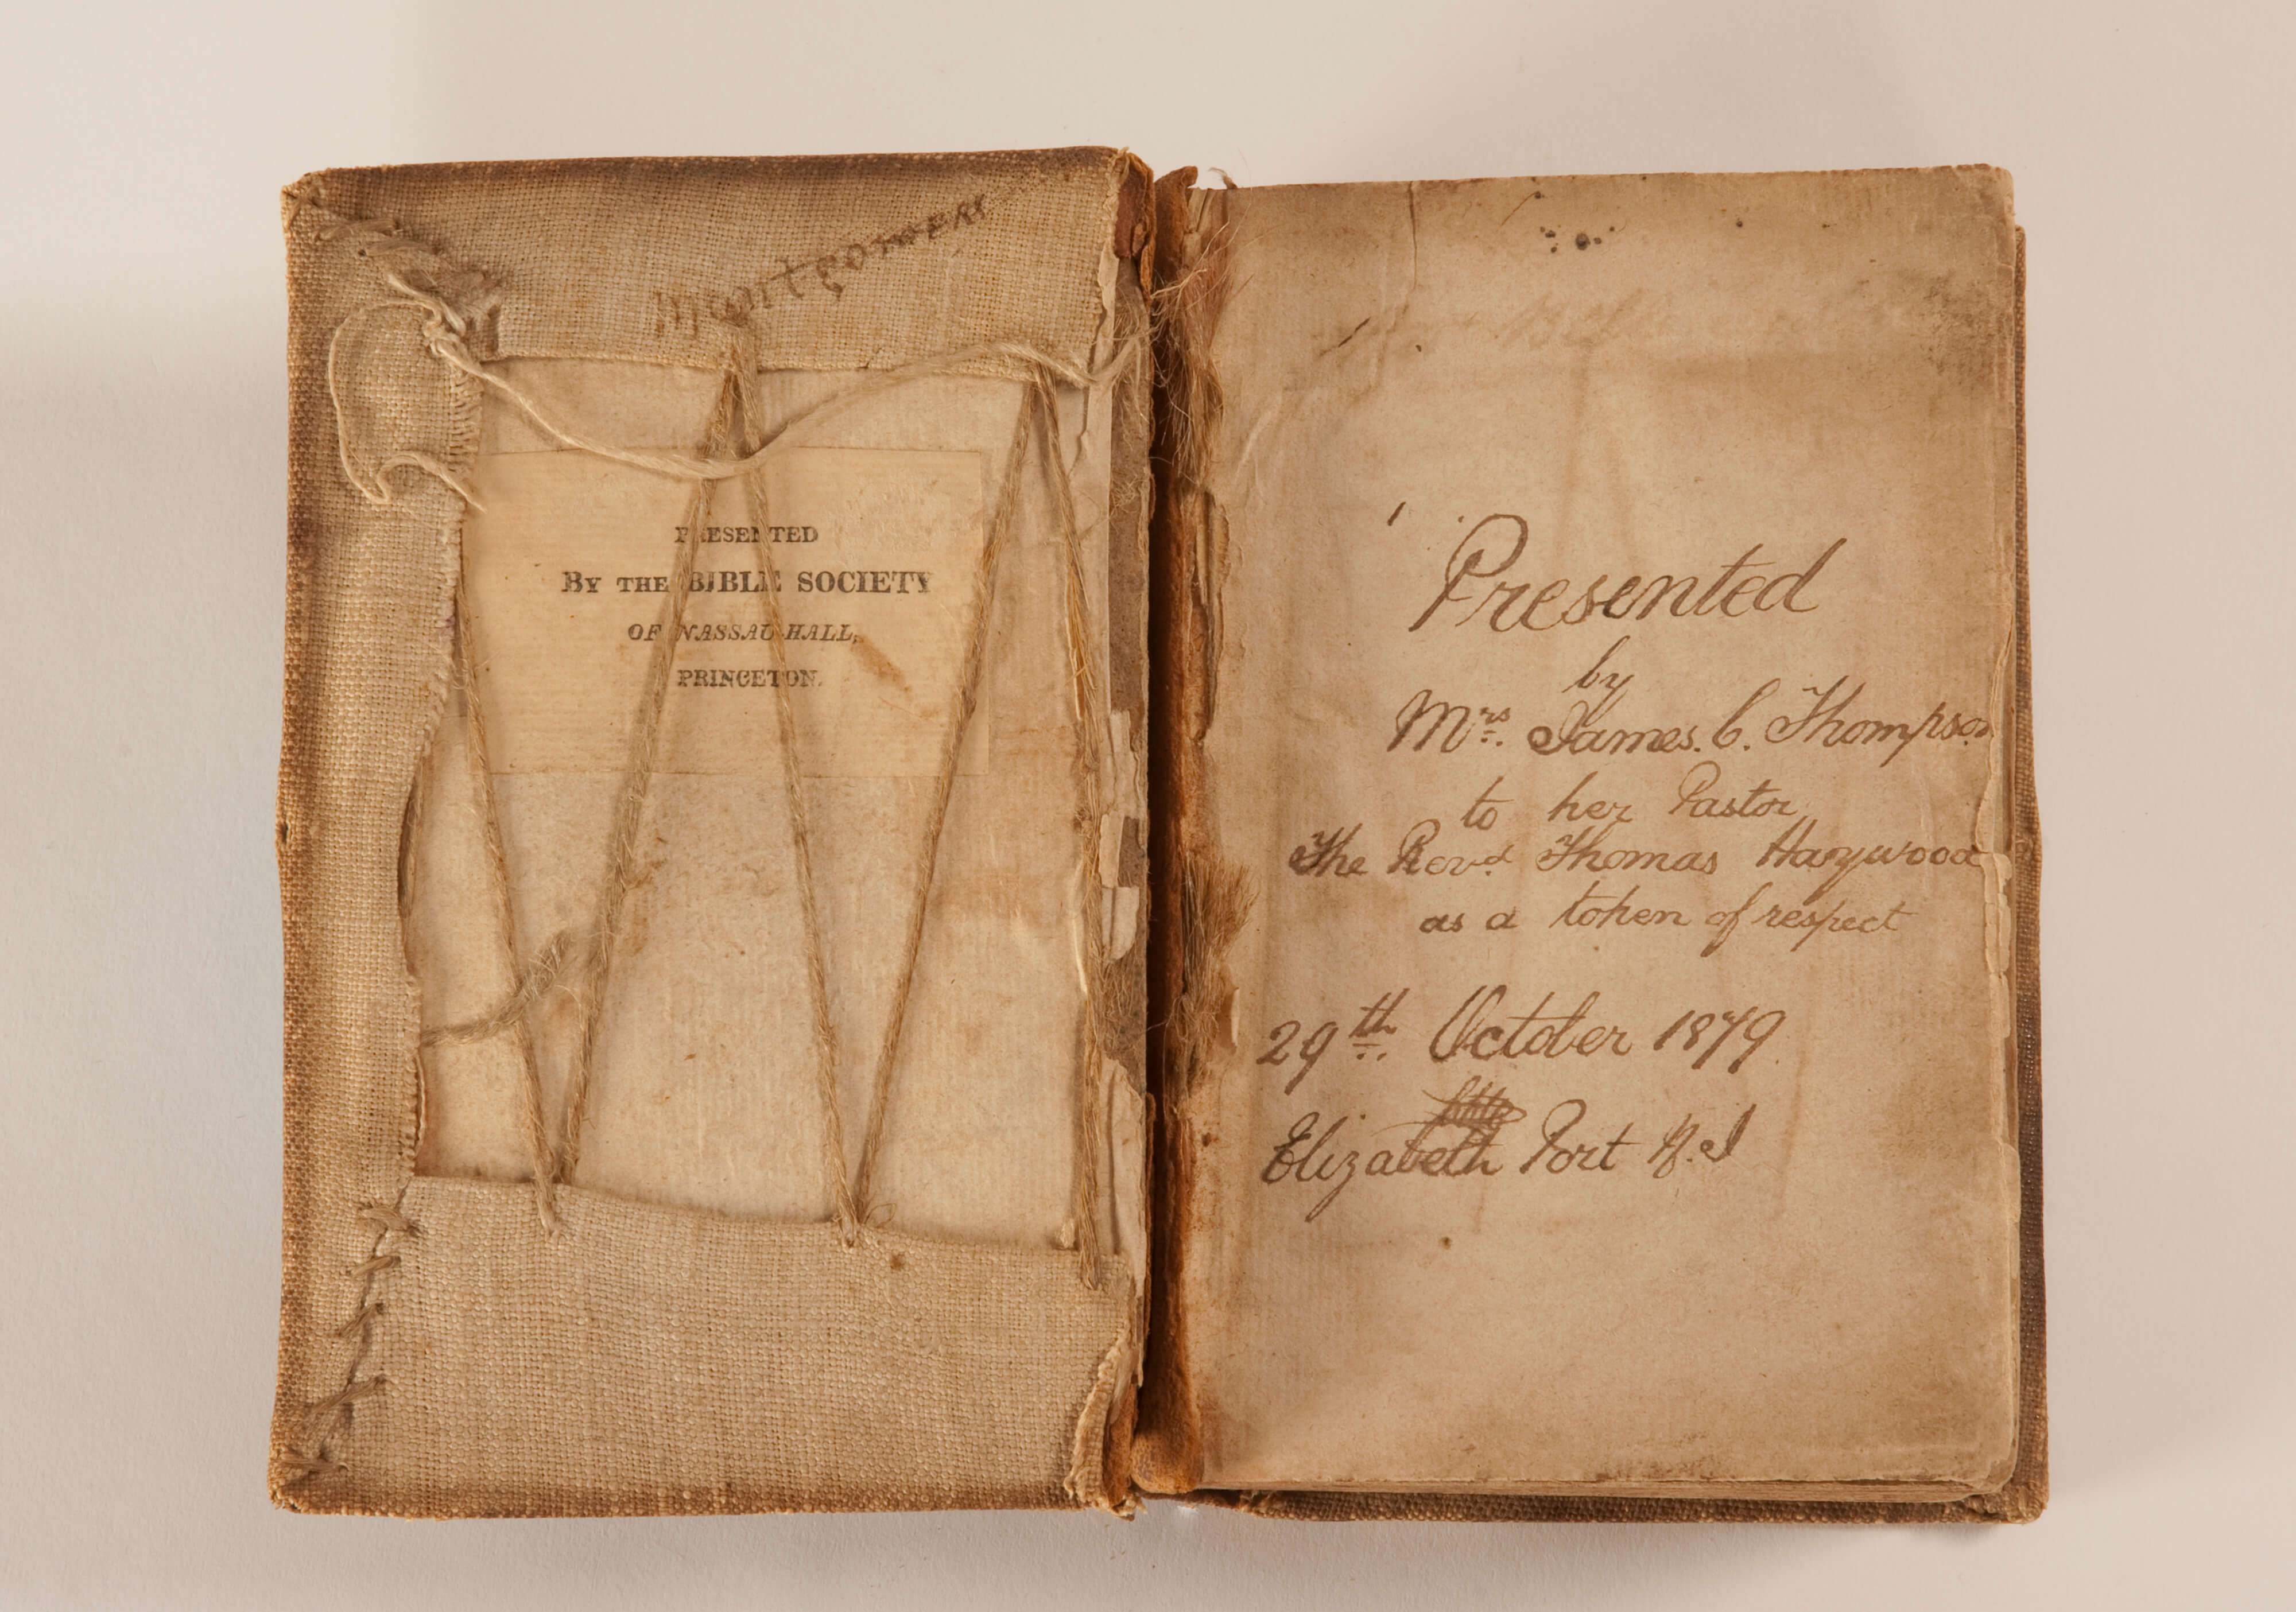 Montgomery
PRESENTED
BY THE BIBLE SOCIETY
OF NASSAU HALL,
PRINCETON.
Presented
by
Mrs. James. C. Thompson
to her Pastor
The Revd. Thomas Haywood
as a token of respect
29th October 1879
Elizabeth Port N.J